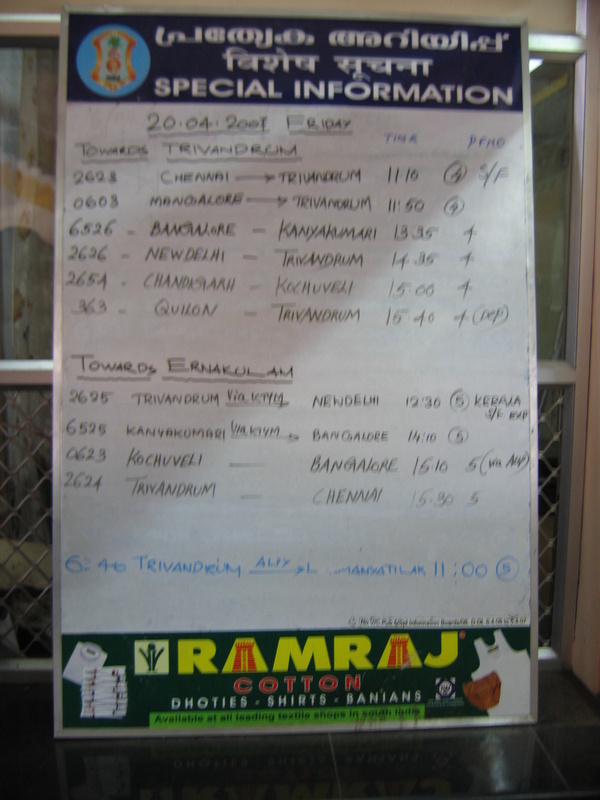 പ്രത്യേക അറിയിപ്പ്
विशेष सूचना
SPECIAL INFORMATION
20.04.2007 FRIDAY
TOWARDS TRIVANDRUM TIME PFNO
2623 CHENNAI → TRIVANDRUM 11.10 (4) S/F
0603 MANGALORE → TRIVANDRUM 11:50 (4)
6526 - BANGALORE - KANYAKUMARI 13.35 4
2626 - NEWDELHI - TRIVANDRUM 14.35 4
2654 - CHANDIGARH - KOCHUVELI 15.00 4
363 - QUILON - TRIVANDRUM 15.40 4 (DEP)
TOWARDS ERNAKULAM
2625 TRIVANDRUM Via KTYM NEWDELHI 12:30 (5) KERALA S/F EXP
6525 KANYAKUMARI Via KTYM → BANGALORE 14:10 (5)
0623 KOCHUVELI — BANGALORE 15.10 5 (via ALLP)
2624 TRIVANDRUM — CHENNAI 15.30 5
TRIVANDRUM 11:00 (5)
RAMRAJ
COTTON
DHOTIES - SHIRTS - BANIANS
Available at all leading textile shops in south India